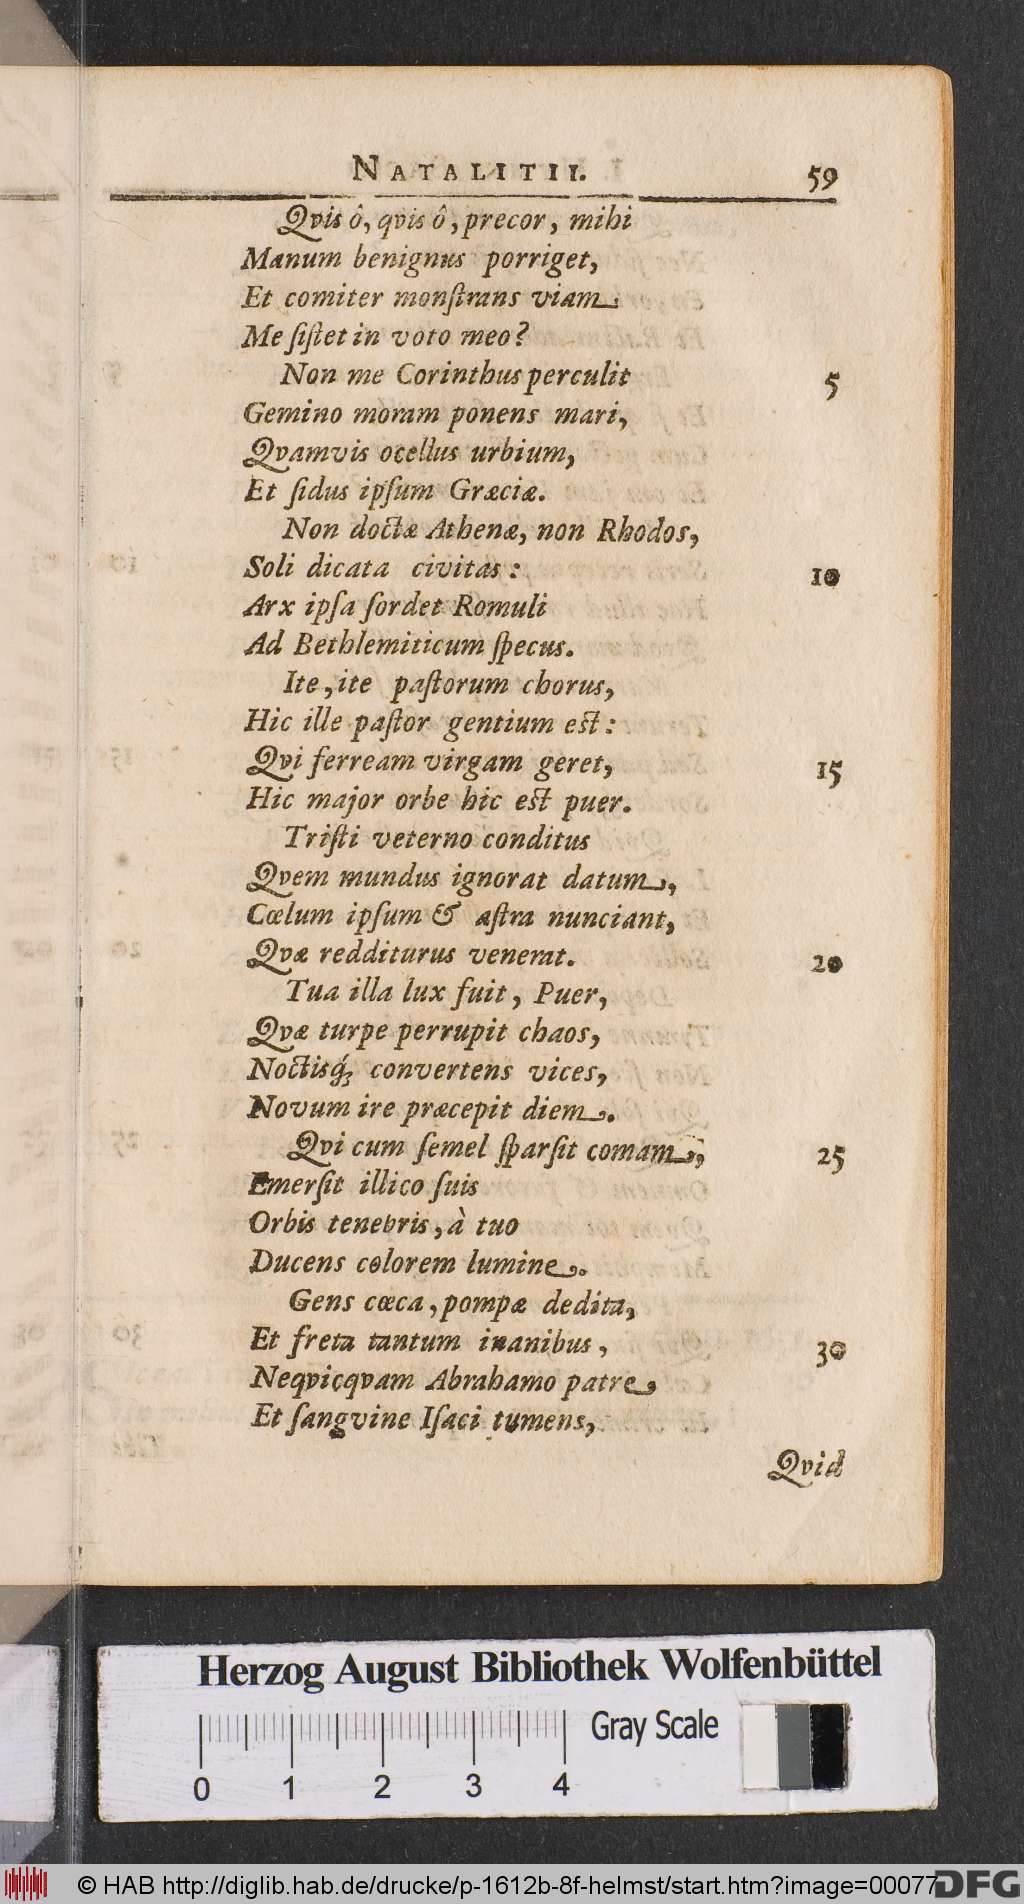 NATALITII. 59
Qvis ô, qvis ô, precor, mihi
Manum benignus porriget,
Et comiter monſtrans viam
Me ſiſtet in voto meo?
Non me Corinthus perculit 5
Gemino moram ponens mari,
Qvamvis ocellus urbium,
Et ſidus ipſum Græciæ.
Non doctæ Athenæ, non Rhodos,
Soli dicata civitas: 10
Arx ipſa ſordet Romuli
Ad Bethlemiticum ſpecus.
Ite, ite paſtorum chorus,
Hic ille paſtor gentium est:
Qvi ferream virgam geret, 15
Hic major orbe hic est puer.
Triſti veterno conditus
Qvem mundus ignorat datum,
Cœlum ipſum & aſtra nunciant,
Qvæ redditurus venerat. 20
Tua illa lux fuit, Puer,
Qvæ turpe perrupit chaos,
Noctisq́; convertens vices,
Novum ire præcepit diem.
Qvi cum ſemel ſparſit comam, 25
Emerſit illico ſuis
Orbis tenebris, à tuo
Ducens colorem lumine.
Gens cœca, pompæ dedita,
Et freta tantum inanibus, 30
Neqvicqvam Abrahamo patre,
Et ſangvine Iſaci tumens,
Qvid
Herzog August Bibliothek Wolfenbüttel
Gray Scale
0 1 2 3 4
© HAB http://diglib.hab.de/drucke/p-1612b-8f-helmst/start.htm?image=00077
DFG